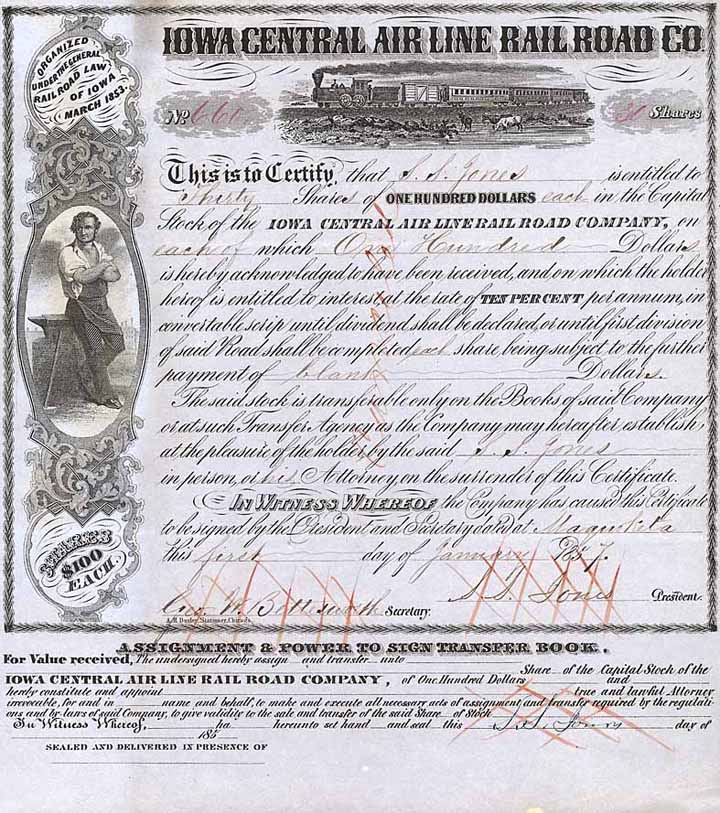 IOWA CENTRAL AIR LINE RAIL ROAD CO.
ORGANIZED
UNDER THE GENERAL
RAIL ROAD LAW
OF IOWA
MARCH 1853.
No 660
30 Shares
This is to Certify, that S. S. Jones is entitled to
Thirty Shares of ONE HUNDRED DOLLARS each in the Capital
Stock of the IOWA CENTRAL AIR LINE RAIL ROAD COMPANY, on
each of which One Hundred Dollars
is hereby acknowledged to have been received, and on which the holder
hereof is entitled to interest at the rate of TEN PER CENT per annum, in
convertable scrip until dividend shall be declared, or until first division
of said Road shall be completed each share being subject to the further
payment of blank Dollars.
The said stock is transferable only on the Books of said Company
or at such Transfer Agency as the Company may hereafter establish,
at the pleasure of the holder by the said S. S. Jones
in person, or his Attorney on the surrender of this Certificate.
IN WITNESS WHEREOF the Company has caused this Certificate
to be signed by the President and Secretary dated at Maquoketa
this first day of January 1857.
SHARES
$100
EACH.
Geo. W. Bettesworth Secretary.
S. S. Jones President.
Stationer, Chicago.
ASSIGNMENT & POWER TO SIGN TRANSFER BOOK.
For Value received, The undersigned hereby assign and transfer unto
Share of the Capital Stock of the
IOWA CENTRAL AIR LINE RAIL ROAD COMPANY, of One Hundred Dollars and
hereby constitute and appoint true and lawful Attorney
irrevocable, for and in name and behalf, to make and execute all necessary acts of assignment and transfer required by the regulati-
ons and by-laws of said Company, to give validity to the sale and transfer of the said Share of Stock
In Witness Whereof, ha hereunto set hand and seal this S. S. Jones day of
185
SEALED AND DELIVERED IN PRESENCE OF